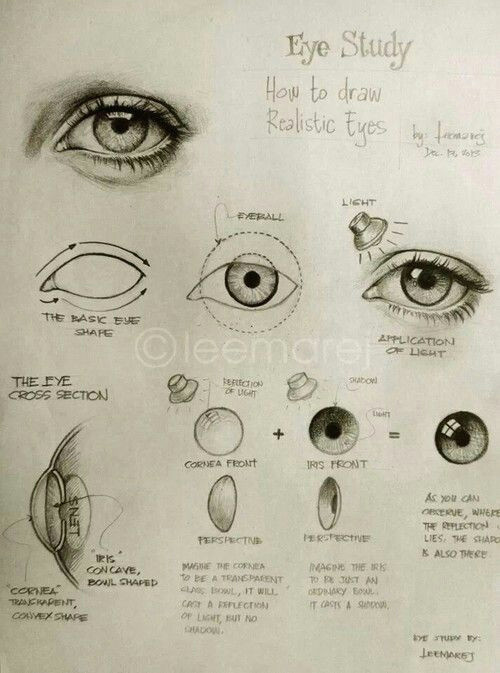 Eye Study
How to draw
Realistic Eyes
by: leemarej
Dec. 13, 2013
LIGHT
EYEBALL
THE BASIC EYE
SHAPE
APPLICATION
OF LIGHT
©leemarej
THE EYE
CROSS SECTION
REFLECTION
OF LIGHT
SHADOW
LIGHT
+
=
CORNEA FRONT
IRIS FRONT
LENS
PERSPECTIVE
PERSPECTIVE
AS YOU CAN
OBSERVE, WHERE
THE REFLECTION
LIES. THE SHADO
IS ALSO THERE.
"IRIS"
CONCAVE,
BOWL SHAPED
"CORNEA"
TRANSPARENT,
CONVEX SHAPE
IMAGINE THE CORNEA
TO BE A TRANSPARENT
GLASS BOWL, IT WILL
CAST A REFLECTION
OF LIGHT, BUT NO
SHADOW.
IMAGINE THE IRIS
TO BE JUST AN
ORDINARY BOWL.
IT CASTS A SHADOW.
EYE STUDY BY:
LEEMAREJ